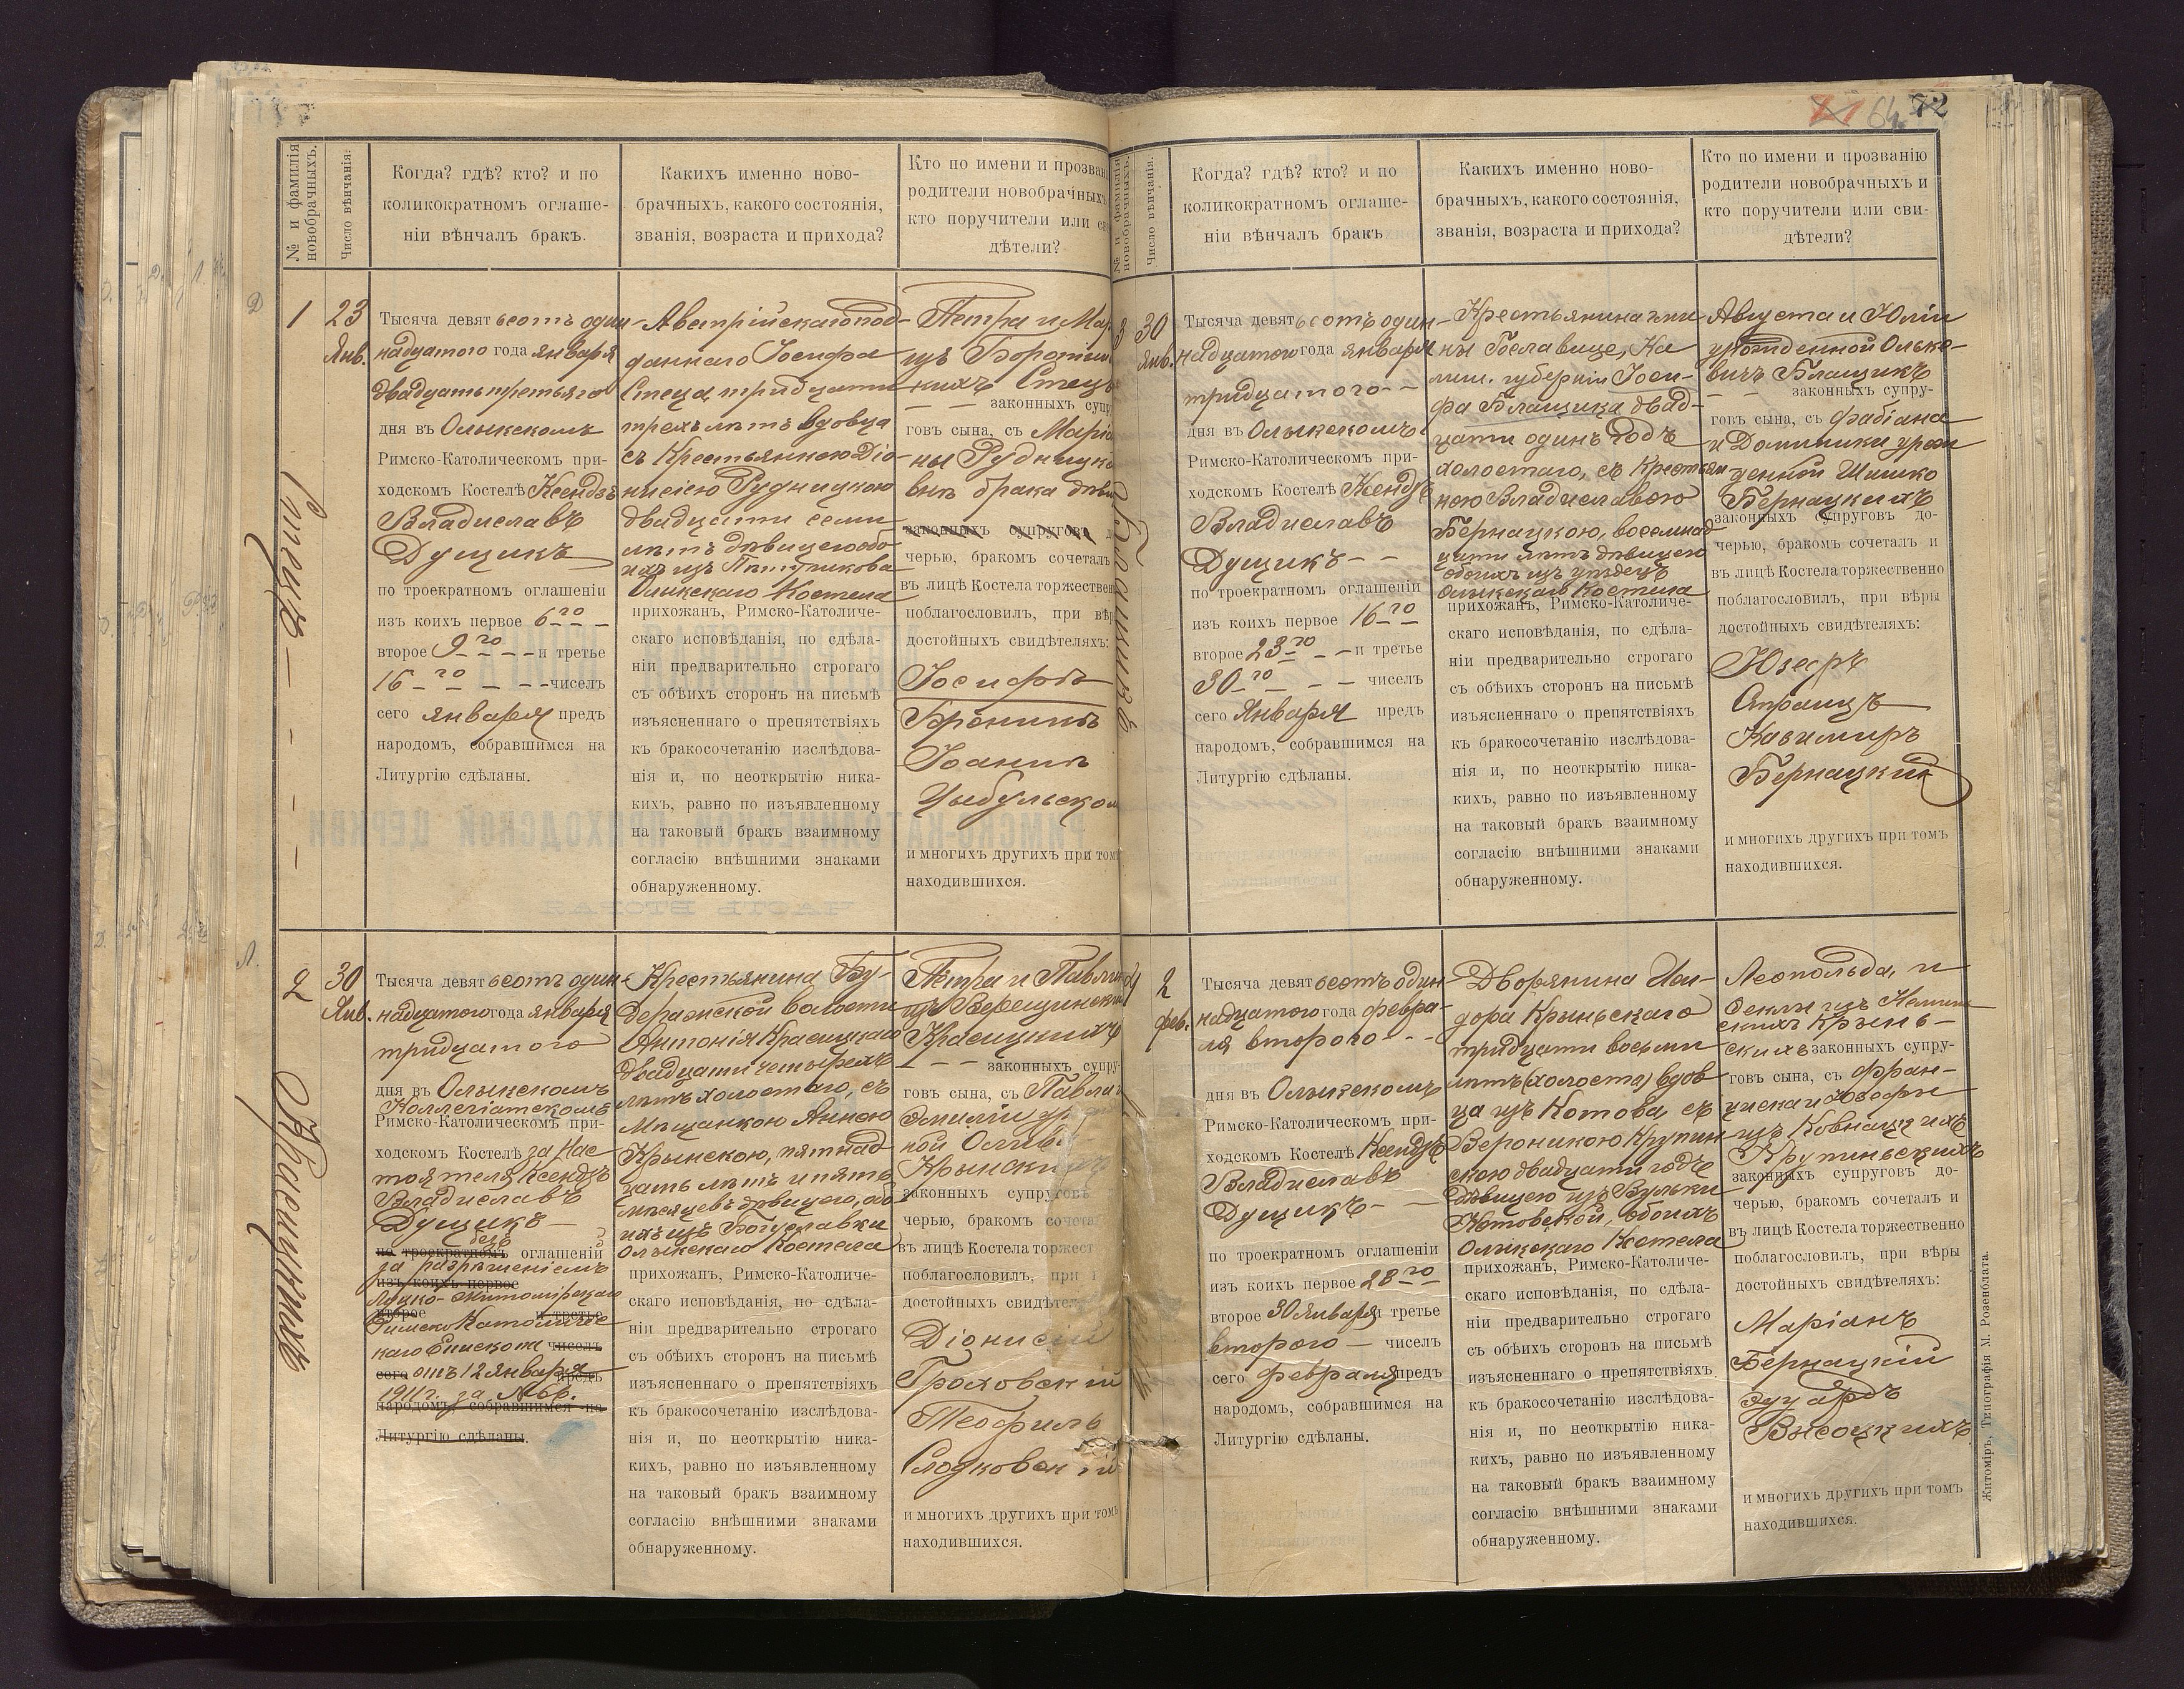 72
64
№ и фамилія новобрачныхъ.
Число вѣнчанія.
Когда? гдѣ? кто? и по
коликократномъ оглаше-
ніи вѣнчалъ бракъ.
Каких​ъ именно ново-
брачныхъ, какого состоянія,
званія, возраста и прихода?
Кто по имени и прозван
родители новобрачныхъ
кто поручители или св
дѣтели?
1
Стецъ
23
Янв.
Тысяча девятьсотъ один-
надцатого года января
двадцать третьяго
дня въ Олыкскомъ
Римско-Католическомъ при-
ходскомъ Костелѣ Ксендзъ
Владиславъ
Дущикъ
по троекратномъ оглашеніи
изъ коихъ первое 6го
второе 9го и третье
16го чиселъ
сего января предъ
народомъ, собравшимся на
Литургію сдѣланы.
Австрійскаго под-
даннаго Іосифа
Стеца, тридцати
трехъ лѣтъ вдовца
съ Крестьянкою Діо-
нисіею Рудницкою
двадцати семи
лѣтъ дѣвицею обо-
ихъ изъ
Олыкскаго Костела
прихожанъ, Римско-Католиче-
скаго исповѣданія, по сдѣла-
ніи предварительно строгаго
съ обѣихъ сторонъ на письмѣ
изъясненнаго о препятствіяхъ
къ бракосочетанію изслѣдова-
нія и, по неоткрытію ника-
кихъ, равно по изъявленному
на таковый бракъ взаимному
согласію внѣшними знаками
обнаруженному.
Петра и Мар
изъ
Стецъ
законныхъ супр
говъ сына, съ Маріа
ны Рудницко
внѣ брака дѣви
законныхъ супруговъ
черью, бракомъ сочеталъ
въ лицѣ Костела торжествен
поблагословилъ, при вѣр
достойныхъ свидѣтеляхъ:
Іосифъ
Бронинъ
Іоаннъ
Цыбульском
и многыхъ другихъ при том
находившихся.
2
Красицкихъ
30
Янв.
Тысяча девятьсотъ один-
надцатого года января
тридцатого
дня въ Олыкскомъ
Коллегіатскомъ
Римско-Католическомъ при-
ходскомъ Костелѣ за Нас
тоятеля Ксендзъ
Владиславъ
Дущикъ
безъ
по троекратномъ оглашеній
за разрѣшеніемъ
изъ коихъ первое
Луцко-Житомірскаго
второе и третье
Римско Католичес
каго Епископа чиселъ
сего отъ 12 января предъ
1911 г. за №
народомъ, собравшимся на
Литургію сдѣланы.
Крестьянина Бу-
деражской волости
Антонія Красицкаго
двадцати четырехъ
лѣтъ холостаго, съ
Мѣщанкою Анною
Крынскою, пятнад-
цать лѣтъ и пять
мѣсяцевъ дѣвицею, обо
ихъ изъ Богуславки
Олыкскаго Костела
прихожанъ, Римско-Католиче-
скаго исповѣданія, по сдѣла-
ніи предварительно строгаго
съ обѣихъ сторонъ на письмѣ
изъясненнаго о препятствіяхъ
къ бракосочетанію изслѣдова-
нія и, по неоткрытію ника-
кихъ, равно по изъявленному
на таковый бракъ взаимному
согласію внѣшними знаками
обнаруженному.
Петра и Павлин
изъ Верещински
Красицкихъ
законныхъ супру-
говъ сына, съ Павла и
Эмиліи
ной
Крынски
законныхъ супруговъ
черью, бракомъ сочетал
въ лицѣ Костела торжест
поблагословилъ, при
достойныхъ свидѣтел
Діонисій
Гроховскій
Теофиль
Слодковскій
и многихъ другихъ при томъ
находившихся.
№ и фамилія новобрачныхъ.
Число вѣнчанія.
Когда? гдѣ? кто? и по
коликократномъ оглаше-
ніи вѣнчалъ бракъ
Какихъ именно ново-
брачныхъ, какого состоянія,
званія, возраста и прихода?
Кто по имени и прозванію
родители новобрачныхъ и
кто поручители или сви-
дѣтели?
3
30
Янв.
Тысяча девятьсотъ один-
надцатого года января
тридцатого
дня въ Олыкскомъ
Римско-Католическомъ при-
ходскомъ Костелѣ Ксендзъ
Владиславъ
Дущикъ
по троекратномъ оглашеніи
изъ коихъ первое 16го
второе 23го и третье
30го чиселъ
сего Января предъ
народомъ, собравшимся на
Литургію сдѣланы.
Крестьянина гми
ны Белавице, Ка
лиш. губерніи Іоси-
фа Блащика двад-
цати одинъ годъ
холостаго, съ Крестьян
кою Владиславою
Бернацкою, восемнад
цати лѣтъ дѣвицею
обоихъ изъ
Олыкскаго Костела
прихожанъ, Римско-Католиче-
скаго исповѣданія, по сдѣла-
ніи предварительно строгаго
съ обѣихъ сторонъ на письмѣ
изъясненнаго о препятствіяхъ
къ бракосочетанію изслѣдова-
нія и, по неоткрытію ника-
кихъ, равно по изъявленному
на таковый бракъ взаимному
согласію внѣшними знаками
обнаруженному.
Августа и Юліи
урожденной Ольке-
вичъ Блащикъ
законныхъ супру-
говъ сына, съ Фабіана
и Доминики урож
денной Шишко
Бернацкихъ
законныхъ супруговъ до-
черью, бракомъ сочеталъ и
въ лицѣ Костела торжественно
поблагословилъ, при вѣры
достойныхъ свидѣтеляхъ:
Юзефъ
Казимиръ
Бернацкий
и многихъ другихъ при томъ
находившихся.
2
фев.
Тысяча девятьсотъ один
надцатого года февра-
ля второго
дня въ Олыкскомъ
Римско-Католическомъ при-
ходскомъ Костелѣ Ксендзъ
Владиславъ
Дущикъ
по троекратномъ оглашеніи
изъ коихъ первое 28го
второе 30 января третье
второго чиселъ
сего февраля предъ
народомъ, собравшимся на
Литургію сдѣланы.
Дворянина Иси-
дора Крыньскаго
тридцати восьми
лѣтъ (холоста) вдов
ца изъ Котова, съ
Вероникою Крупин
скою двадцати годъ
дѣвицею изъ Вульки
Котовской, обоихъ
Олыкскаго Костела
прихожанъ, Римско-Католиче-
скаго исповѣданія, по сдѣла-
ніи предварительно строгаго
съ обѣихъ сторонъ на письмѣ
изъясненнаго о препятствіяхъ
къ бракосочетанію изслѣдова-
нія и, по неоткрытію ника-
кихъ, равно по изъявленному
на таковый бракъ взаимному
согласію внѣшними знаками
обнаруженному.
Леопольда и
Феклы изъ
скихъ Крынь-
скихъ законныхъ супру-
говъ сына, съ Фран-
циска и Юзефы
изъ Ковнацкихъ
Крупиньскихъ
законныхъ супруговъ до-
черью, бракомъ сочеталъ и
въ лицѣ Костела торжественно
поблагословилъ, при вѣры
достойныхъ свидѣтеляхъ:
Маріанъ
Бернацкій
Эдуардъ
Высоцкихъ
и многихъ другихъ при томъ
находившихся.
Житоміръ, Типографія М. Розенблата.